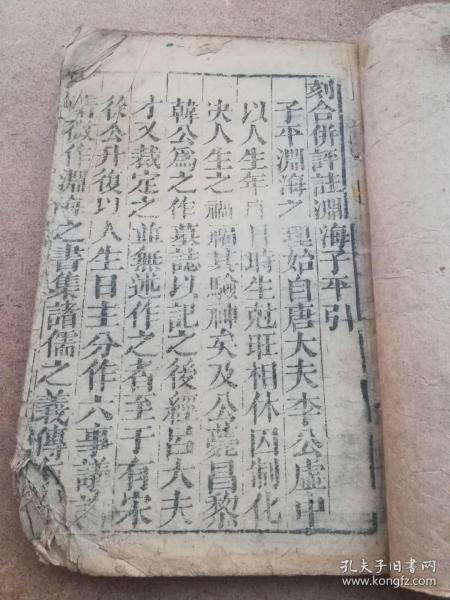 刻合併評註淵海子平引
子平淵海之理始自唐大夫李公虛中
以人生年月日時生尅旺相休囚制化
决人生之禍福其驗神矣及公薨昌黎
韓公爲之作墓誌以記之後經呂大夫
才又裁定之並無述作之者至于有宋
徐公升復以人生日主分作六事議
作淵海之書集諸儒之義傳
孔夫子旧书网
www.kongfz.com